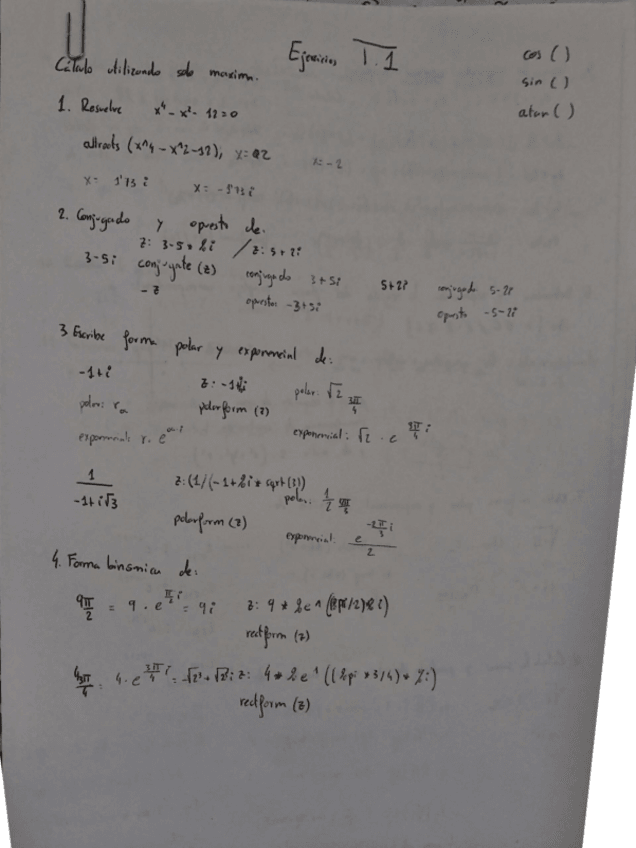 Ejercicios T.1
cos ( )
sin ( )
atan ( )
Cálculo utilizando solo maxima.
1. Resuelve x⁴ - x² - 12 = 0
allroots (x^4 - x^2 - 12), x = 2 x = -2
x = 1'73 i x = -1'73 i
2. Conjugado y opuesto de:
z: 3-5*%i / z: 5+2i
3-5i conjugate (z) conjugado 3+5i 5+2i conjugado 5-2i
-z opuesto: -3+5i opuesto -5-2i
3 Escribe forma polar y exponencial de:
-1+i z: -1+%i polar: √2 3π/4
polar: r α polarform (z)
exponencial: r · e^α·i exponencial: √2 · e^3π/4 i
1/-1+i√3 z: (1/(-1+%i*sqrt(3))
polar: 1/2
polarform (z) exponencial: e^-2π/3 i / 2
4. Forma binómica de:
9 π/2 = 9 · e^π/2 i = 9i z: 9 * %e^((%pi/2)%i)
rectform (z)
4 3π/4 = 4 · e^3π/4 i = -√8 + √8 i z: 4*%e^((%pi*3/4)*%i)
rectform (z)